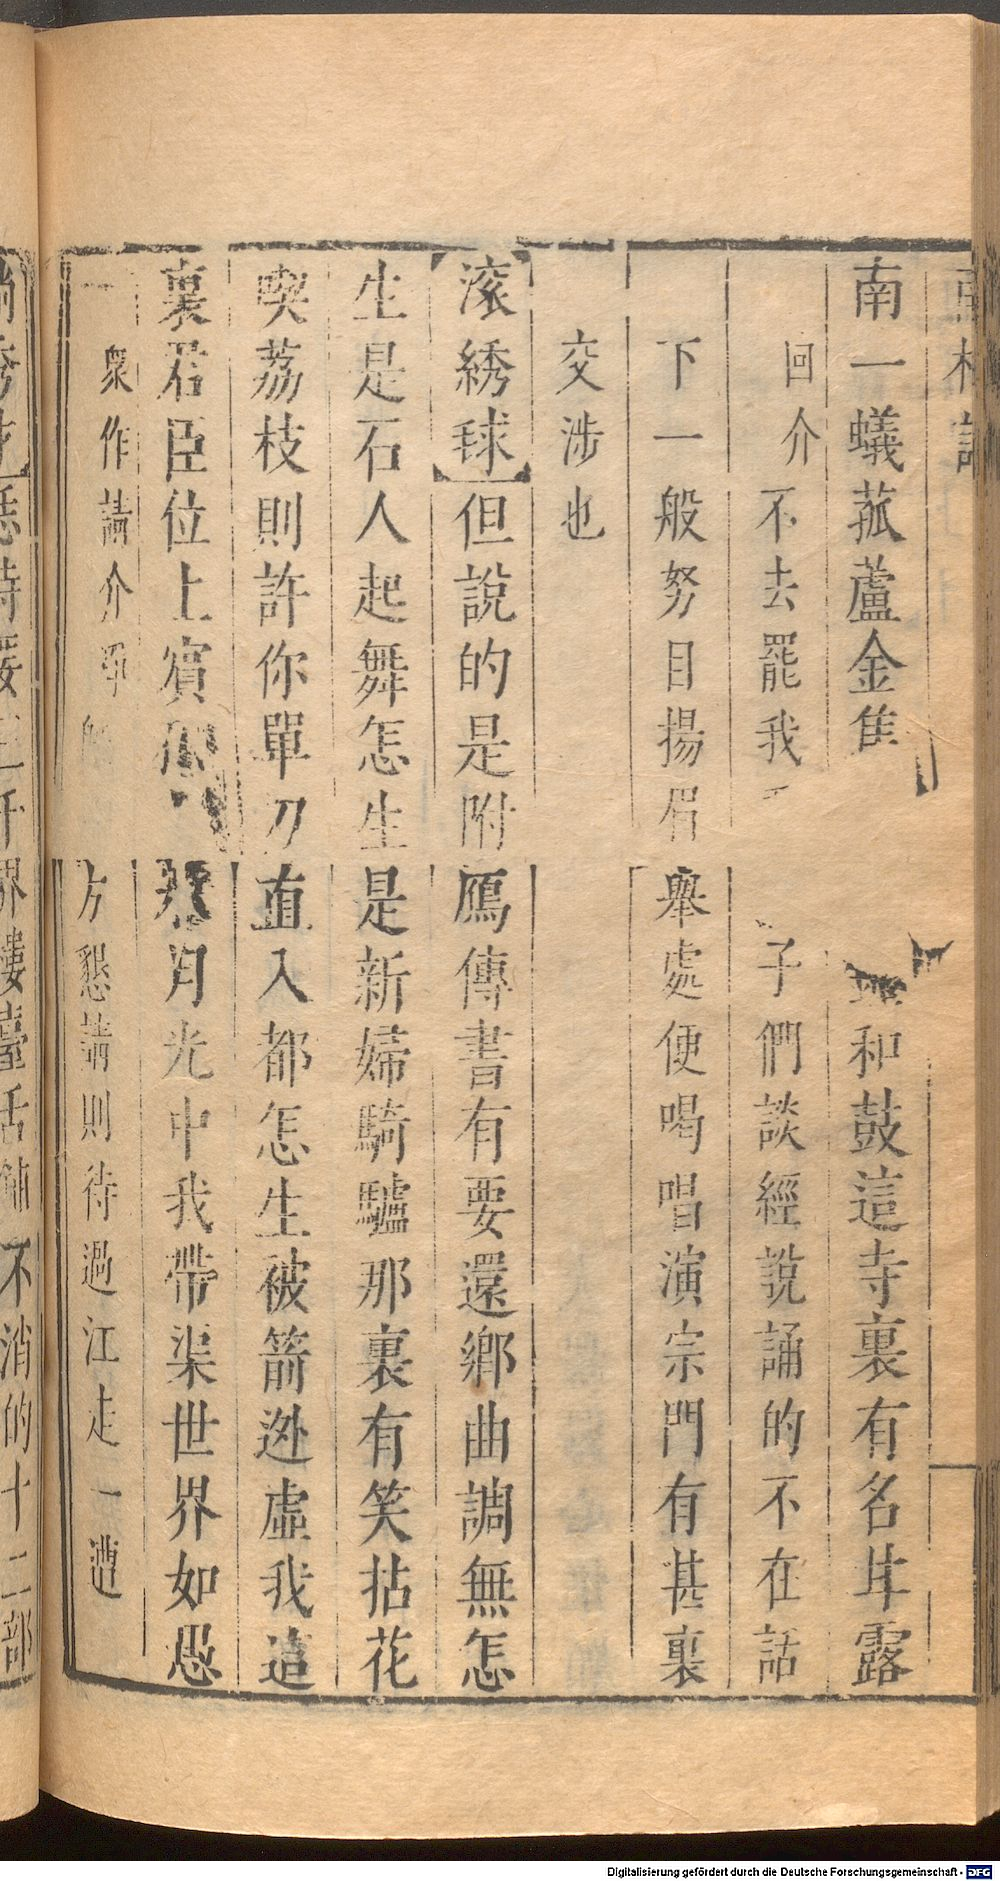 南一蟻菰蘆金隹 和鼓這寺裏有名耳露
回介 不去罷我 子們談經說誦的不在話
下一般努目揚眉舉處便喝唱演宗門有甚裏
交涉也
滾綉球 但說的是附鴈傳書有要還鄉曲調無怎
生是石人起舞怎生是新婦騎驢那裏有笑拈花
喫荔枝則許你單刀直入都怎生被箭逊虛我這
裏君臣位上賓 月光中我帶渠世界如愚
衆作請介 方懇請則待過江走一遭
不消的十二部
Digitalisierung gefördert durch die Deutsche Forschungsgemeinschaft - DFG